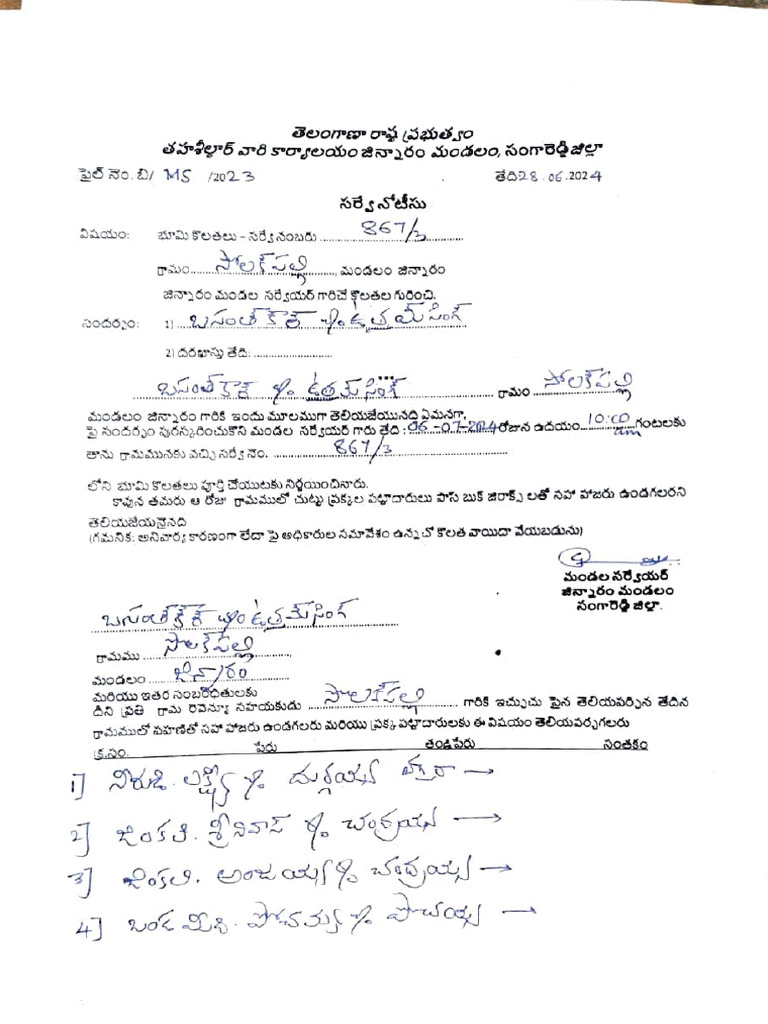 తెలంగాణా రాష్ట్ర ప్రభుత్వం
తహశీల్దార్ వారి కార్యాలయం జిన్నారం మండలం, సంగారెడ్డి జిల్లా
ఫైల్ నెం. బి/ MS /2023 తేది 28.06.2024
సర్వే నోటీసు
విషయం: భూమి కొలతలు – సర్వే నంబరు 867/3
గ్రామం సోలక్‌పల్లి, మండలం జిన్నారం
జిన్నారం మండల సర్వేయర్ గారిచే కొలతల గురించి.
సందర్భం: 1) బసంత్ కౌర్ ఉత్తమ్ సింగ్
2) దరఖాస్తు తేది:
బసంత్ కౌర్ ఉత్తమ్ సింగ్ గ్రామం సోలక్‌పల్లి
మండలం జిన్నారం గారికి ఇందు మూలముగా తెలియజేయునది ఏమనగా,
పై సందర్భం పురస్కరించుకొని మండల సర్వేయర్ గారు తేది: 06-07-2024 రోజున ఉదయం 10:00 గంటలకు
తాను గ్రామమునకు వచ్చి సర్వే నెం. 867/3
లోని భూమి కొలతలు పూర్తి చేయుటకు నిర్ణయించినారు.
కావున తమరు ఆ రోజు గ్రామములో చుట్టు ప్రక్కల పట్టాదారులు పాస్ బుక్ జిరాక్స్ లతో సహా హాజరు ఉండగలరని
తెలియజేయనైనది
(గమనిక: అనివార్య కారణంగా లేదా పై అధికారుల సమావేశం ఉన్నచో కొలత వాయిదా వేయబడును)
మండల సర్వేయర్
జిన్నారం మండలం
సంగారెడ్డి జిల్లా.
బసంత్ కౌర్ ఉత్తమ్ సింగ్
గ్రామము సోలక్‌పల్లి
మండలం జిన్నారం
మరియు ఇతర సంబంధితులకు
దీని ప్రతి గ్రామ రెవెన్యూ సహయకుడు సోలక్‌పల్లి గారికి ఇచ్చుచు పైన తెలియపర్చిన తేదిన
గ్రామములో పహణితో సహా హాజరు ఉండగలరు మరియు ప్రక్క పట్టాదారులకు ఈ విషయం తెలియపర్చగలరు
క్ర.సం. పేరు తండ్రిపేరు సంతకం
1] నీరుడి. లక్ష్మి దుర్గయ్య ద్వారా →
2] జింకల. శ్రీనివాస్ S/o చంద్రయ్య →
3] జింకల. అంజయ్య S/o చంద్రయ్య →
4] పోచమ్మ పోచయ్య →